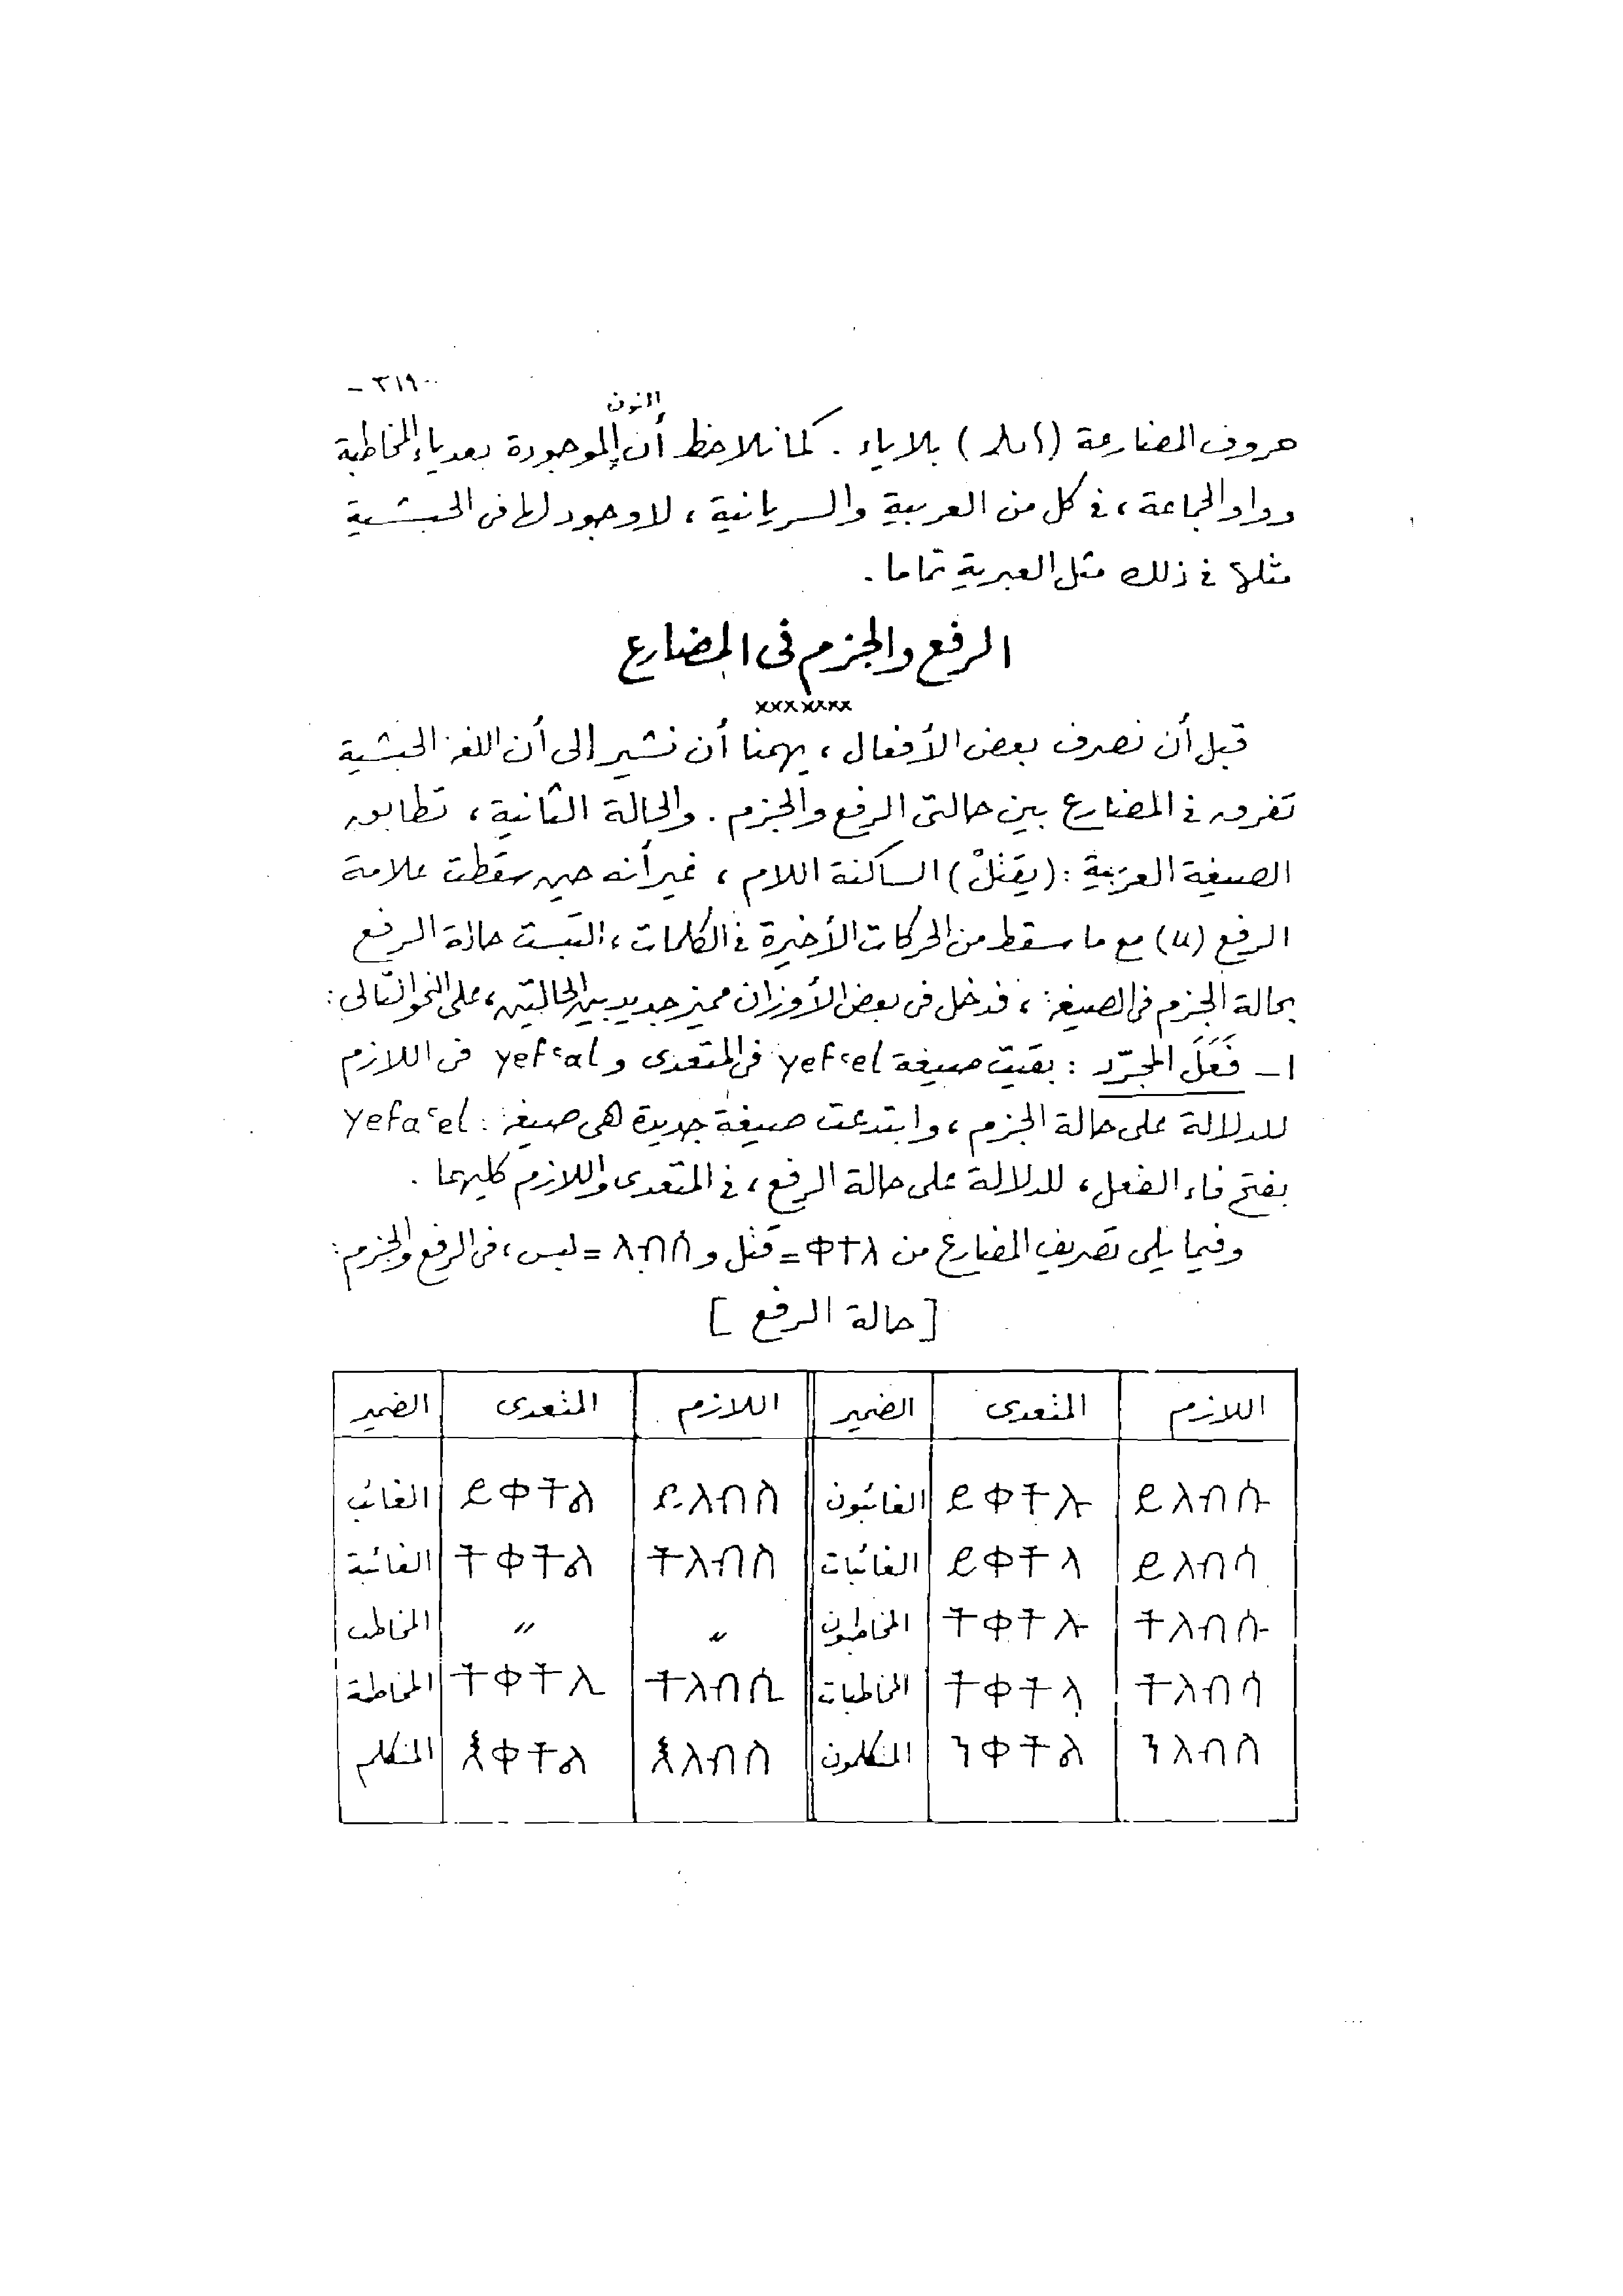 - ٣١٩ -
حروف المضارعة بلاياء . كما نلاحظ أن النون الموجودة بعد ياء المخاطبة
وواو الجماعة ، فى كل من العربية والسريانية ، لا وجود لها فى الحبشية
مثلها فى ذلك مثل العبرية تماما .
الرفع والجزم فى المضارع
×××××××
قبل أن نصرف بعض الأفعال ، يهمنا أن نشير إلى أن اللغة الحبشية
تفرق فى المضارع بين حالتى الرفع والجزم . والحالة الثانية ، تطابق
الصيغة العربية : (يقتلْ) الساكنة اللام ، غير أنه حين سقطت علامة
الرفع (u) مع ما سقط من الحركات الأخيرة فى الكلمات ، التبست حالة الرفع
بحالة الجزم فى الصيغة ، فدخل فى بعض الأوزان مميز جديد بين الحالتين ، على النحو التالى :
١ - فَعَلَ المجرّد : بقيت صيغة yefʿel فى المتعدى و yefʿal فى اللازم
للدلالة على حالة الجزم ، وابتدعت صيغة جديدة هى صيغة : yefaʿel
بفتح فاء الفعل ، للدلالة على حالة الرفع ، فى المتعدى واللازم كليهما .
وفيما يلى تصريف المضارع من ቀተለ = قتل و ለብሰ = لبس ، فى الرفع والجزم :
[ حالة الرفع ]
اللازم المتعدى الضمير اللازم المتعدى الضمير
ይለብሱ ይቀትሉ الغائبون ይለብስ ይቀትል الغائب
ይለብሳ ይቀትላ الغائبات ትለብስ ትቀትል الغائبة
ትለብሱ ትቀትሉ المخاطبون 〃 〃 المخاطب
ትለብሳ ትቀትላ المخاطبات ትለብሲ ትቀትሊ المخاطبة
ንለብስ ንቀትል المتكلمون እለብስ እቀትል المتكلم